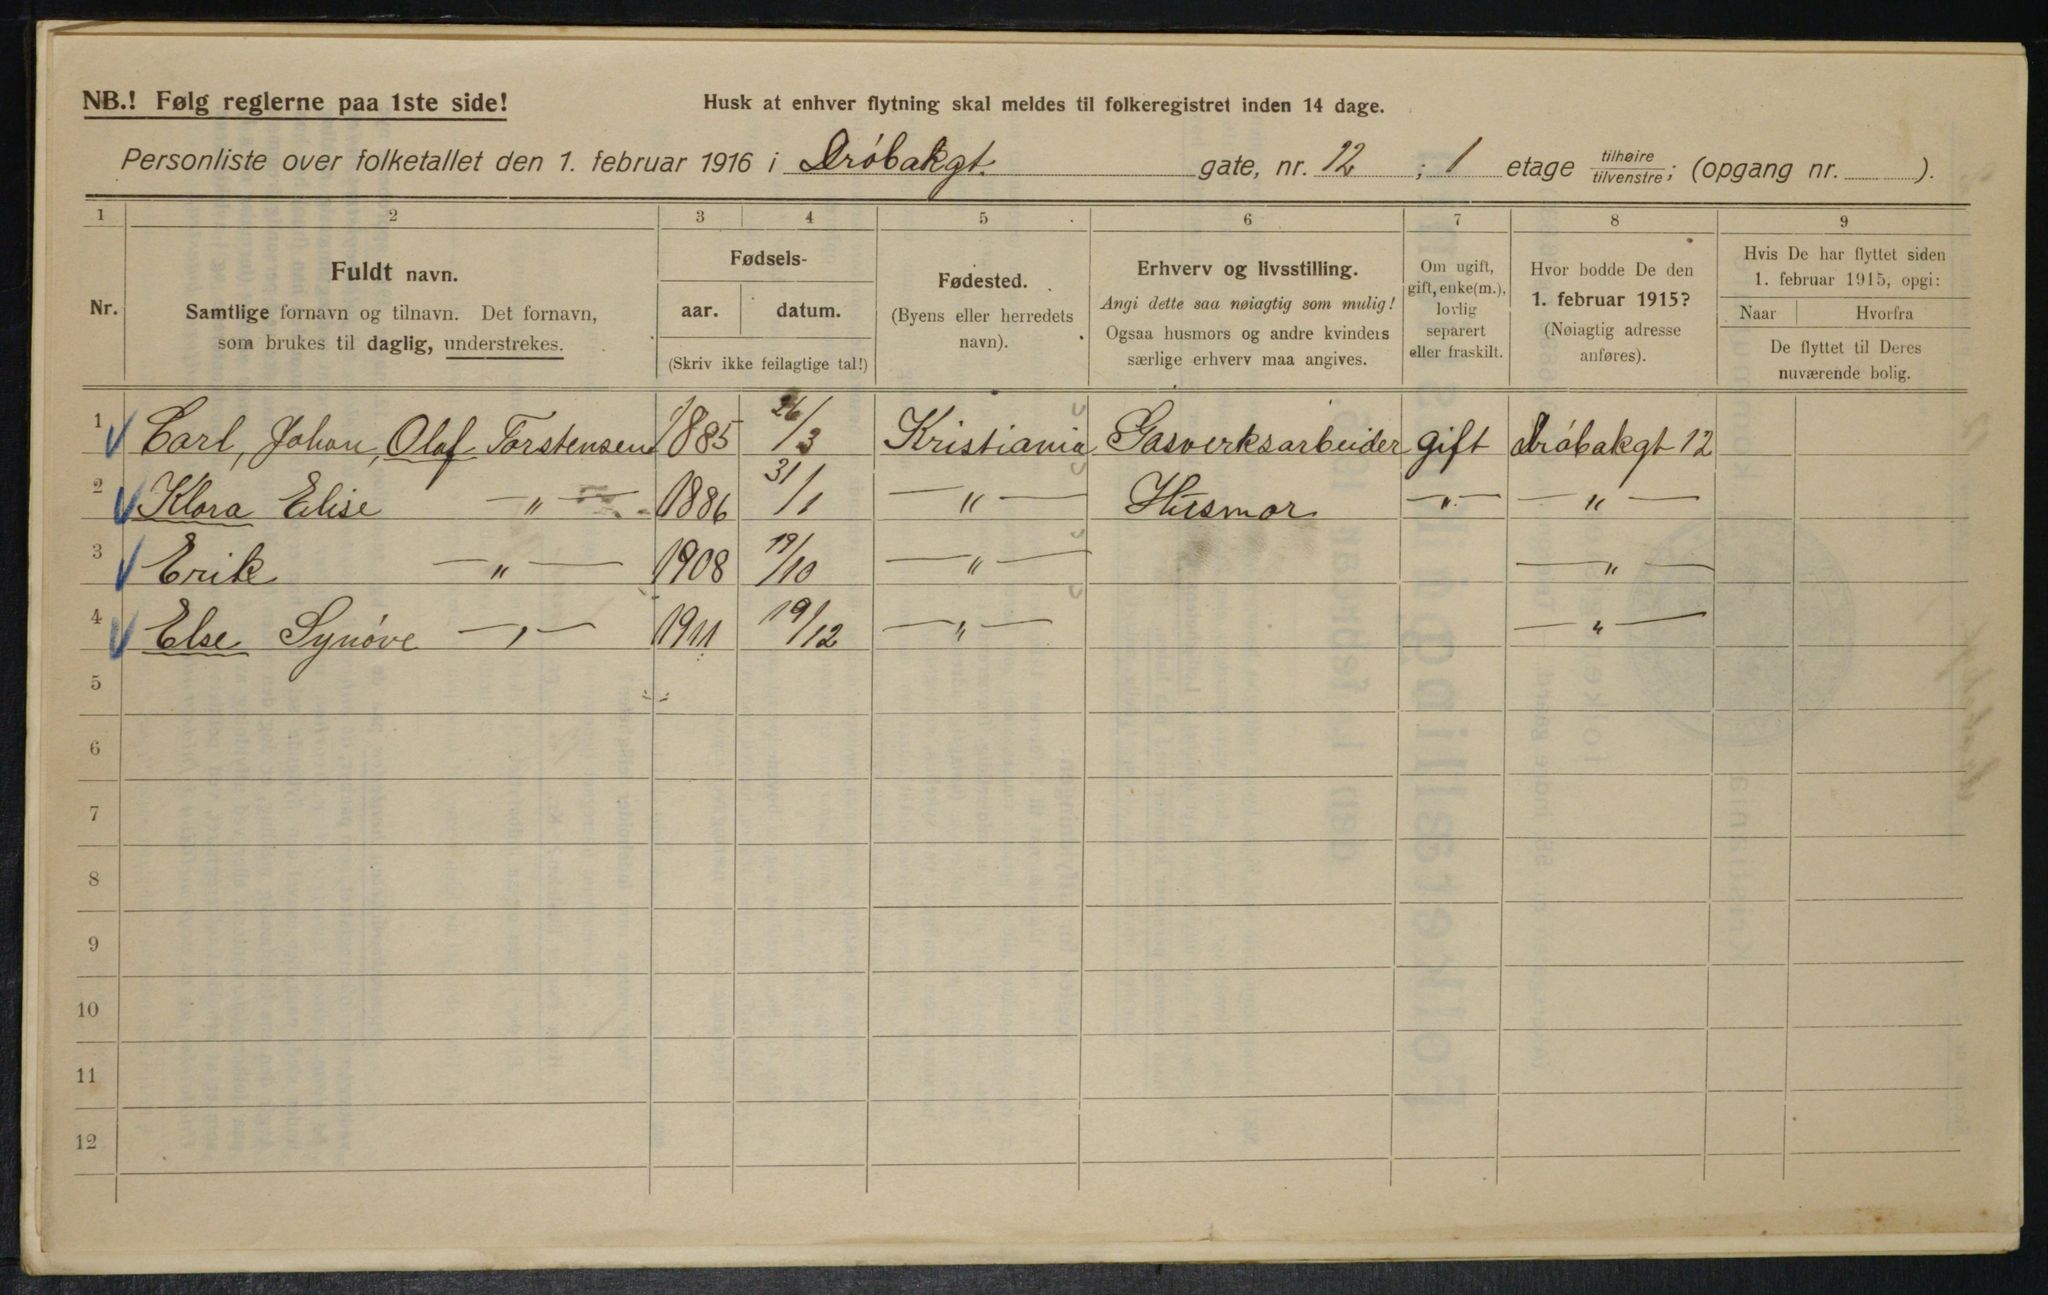 NB.! Følg reglerne paa 1ste side!
Husk at enhver flytning skal meldes til folkeregistret inden 14 dage.
Personliste over folketallet den 1. februar 1916 i Drøbakgt. gate, nr. 12 ; 1 etage tilhøire/tilvenstre; (opgang nr. ).
1 2 3 4 5 6 7 8 9
Nr.
Fuldt navn.
Samtlige fornavn og tilnavn. Det fornavn,
som brukes til daglig, understrekes.
Fødsels-
aar. datum.
(Skriv ikke feilagtige tal!)
Fødested.
(Byens eller herredets
navn).
Erhverv og livsstilling.
Angi dette saa nøiagtig som mulig!
Ogsaa husmors og andre kvinders
særlige erhverv maa angives.
Om ugift,
gift, enke(m.),
lovlig
separert
eller fraskilt.
Hvor bodde De den
1. februar 1915?
(Nøiagtig adresse
anføres).
Hvis De har flyttet siden
1. februar 1915, opgi:
Naar Hvorfra
De flyttet til Deres
nuværende bolig.
1 Carl, Johan, Olaf Torstensen 1885 26/3 Kristiania Gasverksarbeider gift Drøbakgt 12
2 Klara Elise —"— 1886 31/1 —"— Husmor —"— —"—
3 Erik —"— 1908 19/10 —"— —"—
4 Else Synøve —"— 1911 19/12 —"— —"—
5
6
7
8
9
10
11
12